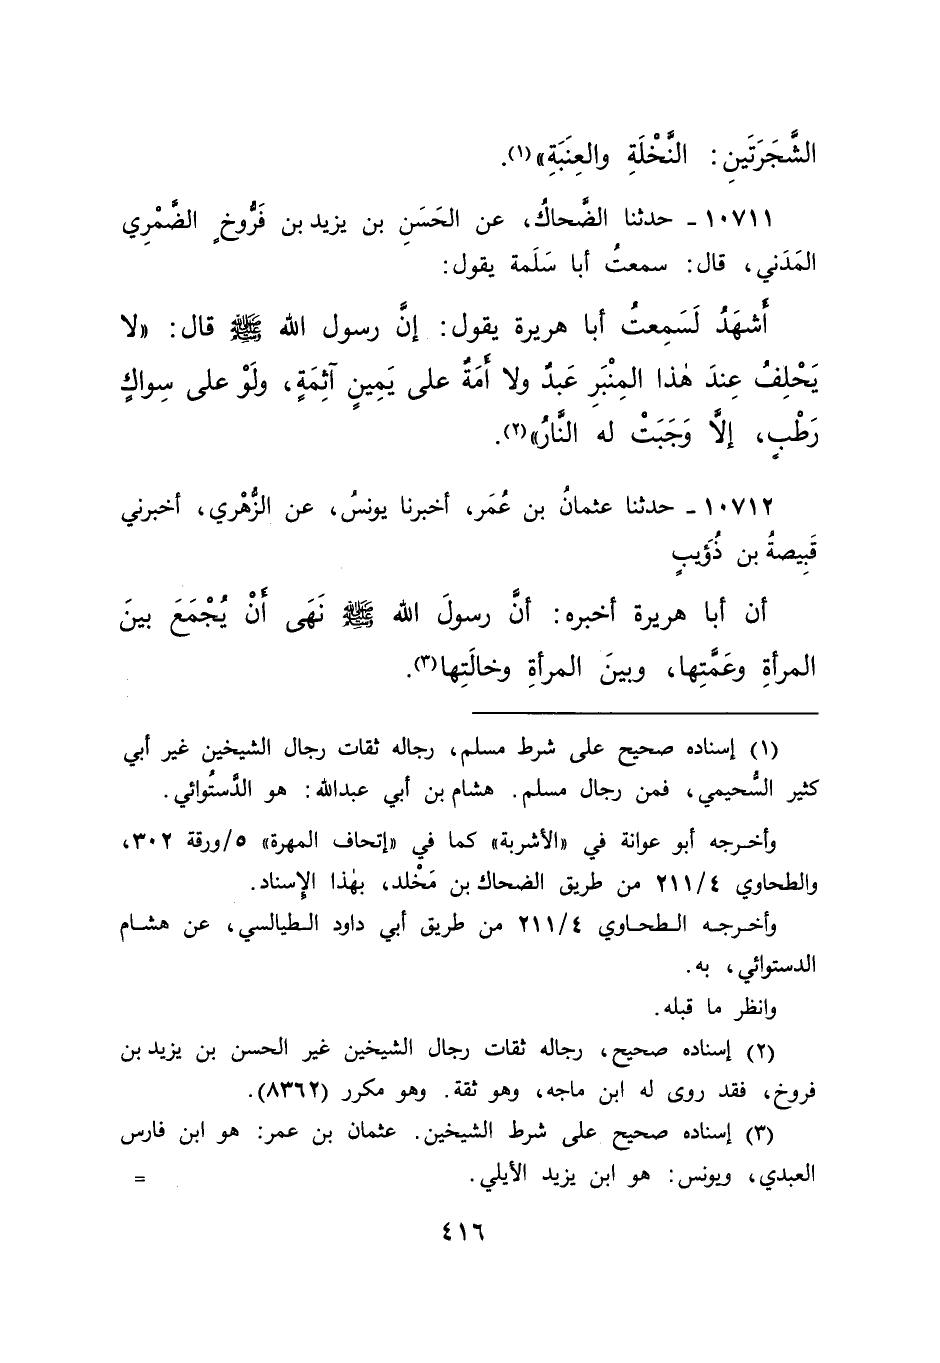 الشَّجَرَتَينِ: النَّخْلَةِ والعِنَبَةِ»(١).
١٠٧١١ - حدثنا الضَّحاكُ، عن الحَسَنِ بن يزيد بن فَرُّوخٍ الضَّمْري
المَدَني، قال: سمعتُ أبا سَلَمة يقول:
أَشهَدُ لَسَمِعتُ أبا هريرة يقول: إنَّ رسول الله ﷺ قال: «لا
يَحْلِفُ عِندَ هٰذا المِنْبَرِ عَبدٌ ولا أَمَةٌ على يَمِينٍ آثِمَةٍ، ولَوْ على سِواكٍ
رَطْبٍ، إلَّا وَجَبَتْ له النَّارُ»(٢).
١٠٧١٢ - حدثنا عثمانُ بن عُمَر، أخبرنا يونسُ، عن الزُّهْري، أخبرني
قَبِيصةُ بن ذُؤَيبٍ
أن أبا هريرة أخبره: أنَّ رسولَ الله ﷺ نَهَى أَنْ يُجْمَعَ بينَ
المرأةِ وعَمَّتِها، وبينَ المرأةِ وخالَتِها(٣).
(١) إسناده صحيح على شرط مسلم، رجاله ثقات رجال الشيخين غير أبي
كثير السُّحيمي، فمن رجال مسلم. هشام بن أبي عبدالله: هو الدَّستُوائي.
وأخرجه أبو عوانة في «الأشربة» كما في «إتحاف المهرة» ٥/ورقة ٣٠٢،
والطحاوي ٢١١/٤ من طريق الضحاك بن مَخْلد، بهٰذا الإسناد.
وأخرجه الطحاوي ٢١١/٤ من طريق أبي داود الطيالسي، عن هشام
الدستوائي، به.
وانظر ما قبله.
(٢) إسناده صحيح، رجاله ثقات رجال الشيخين غير الحسن بن يزيد بن
فروخ، فقد روى له ابن ماجه، وهو ثقة. وهو مكرر (٨٣٦٢).
(٣) إسناده صحيح على شرط الشيخين. عثمان بن عمر: هو ابن فارس
العبدي، ويونس: هو ابن يزيد الأيلي. =
٤١٦